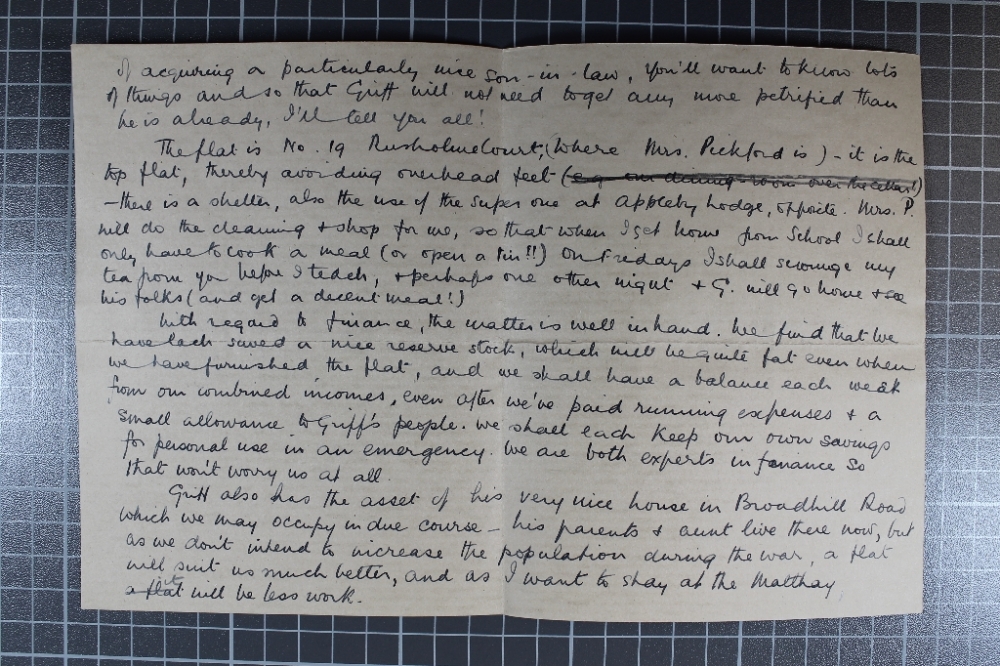 of acquiring a particularly nice son-in-law, you'll want to know lots
of things and so that Griff will not need to get any more petrified than
he is already, I'll tell you all!
The flat is No. 19 Rusholme Court, (where Mrs. Pickford is) - it is the
top flat, thereby avoiding overhead feet (e.g. our dining-room over the cellar!)
- there is a shelter, also the use of the super one at Appleby Lodge, opposite. Mrs. P.
will do the cleaning + shop for me, so that when I get home from School I shall
only have to cook a meal (or open a tin!!) On Fridays I shall scrounge my
tea from you before I teach, + perhaps one other night + G. will go home + see
his folks (and get a decent meal!)
With regard to finance, the matter is well in hand. We find that we
have each saved a nice reserve stock, which will be quite fat even when
we have furnished the flat, and we shall have a balance each week
from our combined incomes, even after we've paid running expenses + a
small allowance to Griff's people. We shall each keep our own savings
for personal use in an emergency. We are both experts in finance so
that won't worry us at all.
Griff also has the asset of his very nice house in Broadhill Road
which we may occupy in due course - his parents + aunt live there now, but
as we don't intend to increase the population during the war, a flat
will suit us much better, and as I want to stay at the Matthay
a flat it will be less work.